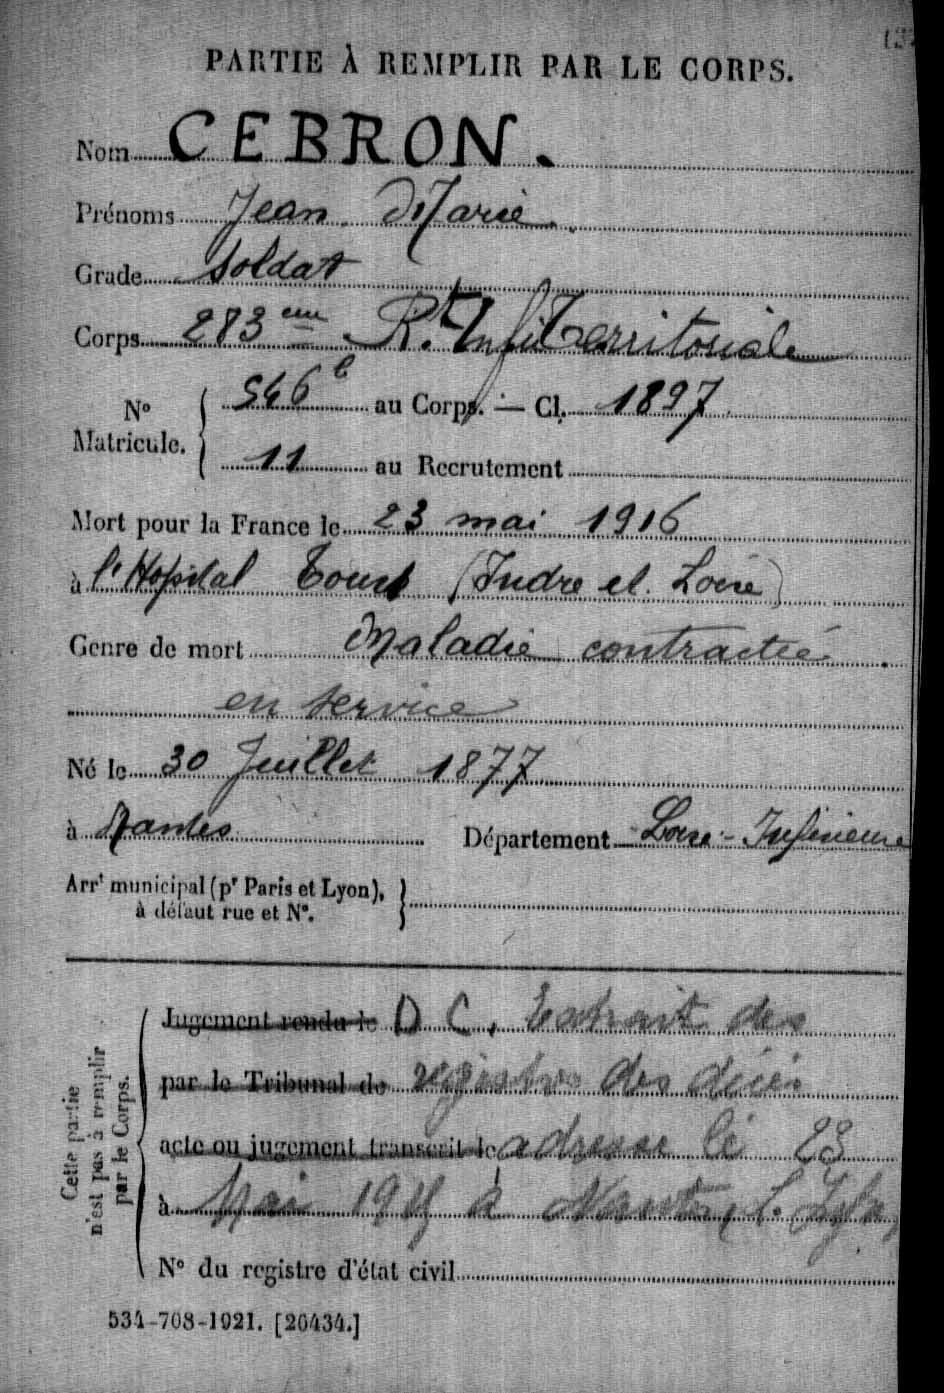 PARTIE À REMPLIR PAR LE CORPS.
Nom CEBRON.
Prénoms Jean Marie.
Grade Soldat
Corps 283eme Rt. Infie Territoriale
No Matricule. { 546 au Corps. — Cl. 1897
11 au Recrutement
Mort pour la France le 23 mai 1916
à l'Hopital Tours (Indre et. Loire)
Genre de mort Maladie contractée
en service
Né le 30 Juillet 1877
à Nantes Département Loire-Inférieure
Arrt municipal (pr Paris et Lyon), à défaut rue et No. }
Cette partie n'est pas à remplir par le Corps.
Jugement rendu le D C, Extrait des
par le Tribunal de registres des décès
acte ou jugement transcrit le adressé le 23
à Mai 19 à Nantes, L. Infre
No du registre d'état civil
534-708-1921. [26434.]